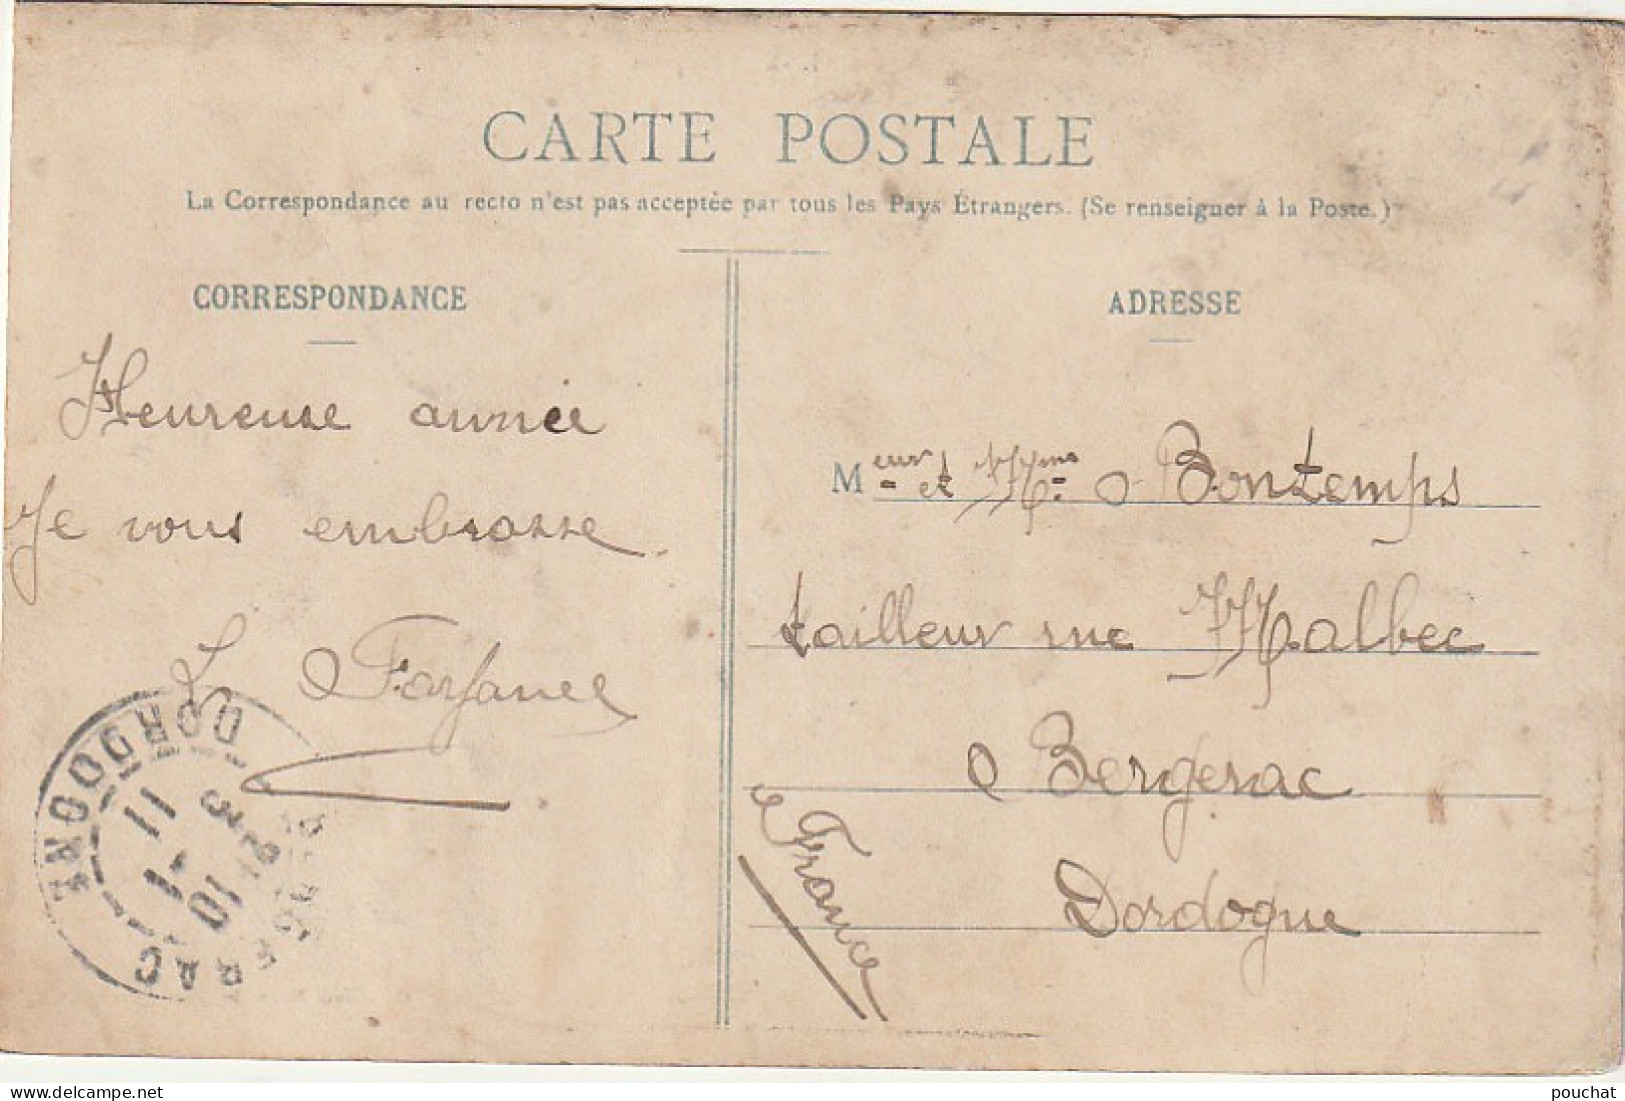 CARTE POSTALE
La Correspondance au recto n'est pas acceptée par tous les Pays Étrangers. (Se renseigner à la Poste.)
CORRESPONDANCE
Heureuse année
Je vous embrasse.
L Farfanel
DORDOGNE
BERGERAC
ADRESSE
Meur et Mme Bontemps
tailleur rue Malbec
Bergerac
Dordogne
France
pouchat